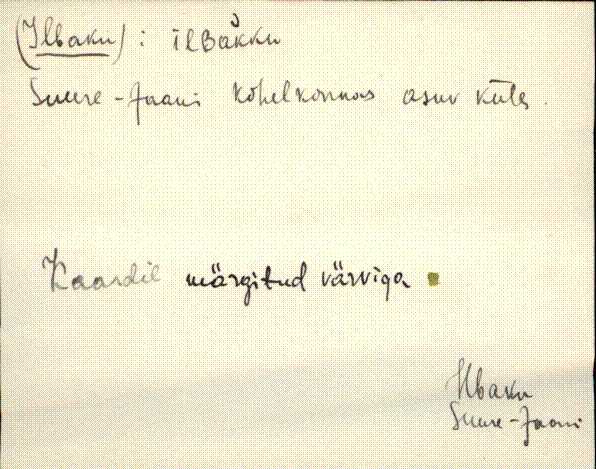 (Ilbaku) : ilBakku
Suure-Jaani kihelkonnas asuv küla.
Kaardil märgitud värviga
Ilbaku
Suure-Jaani